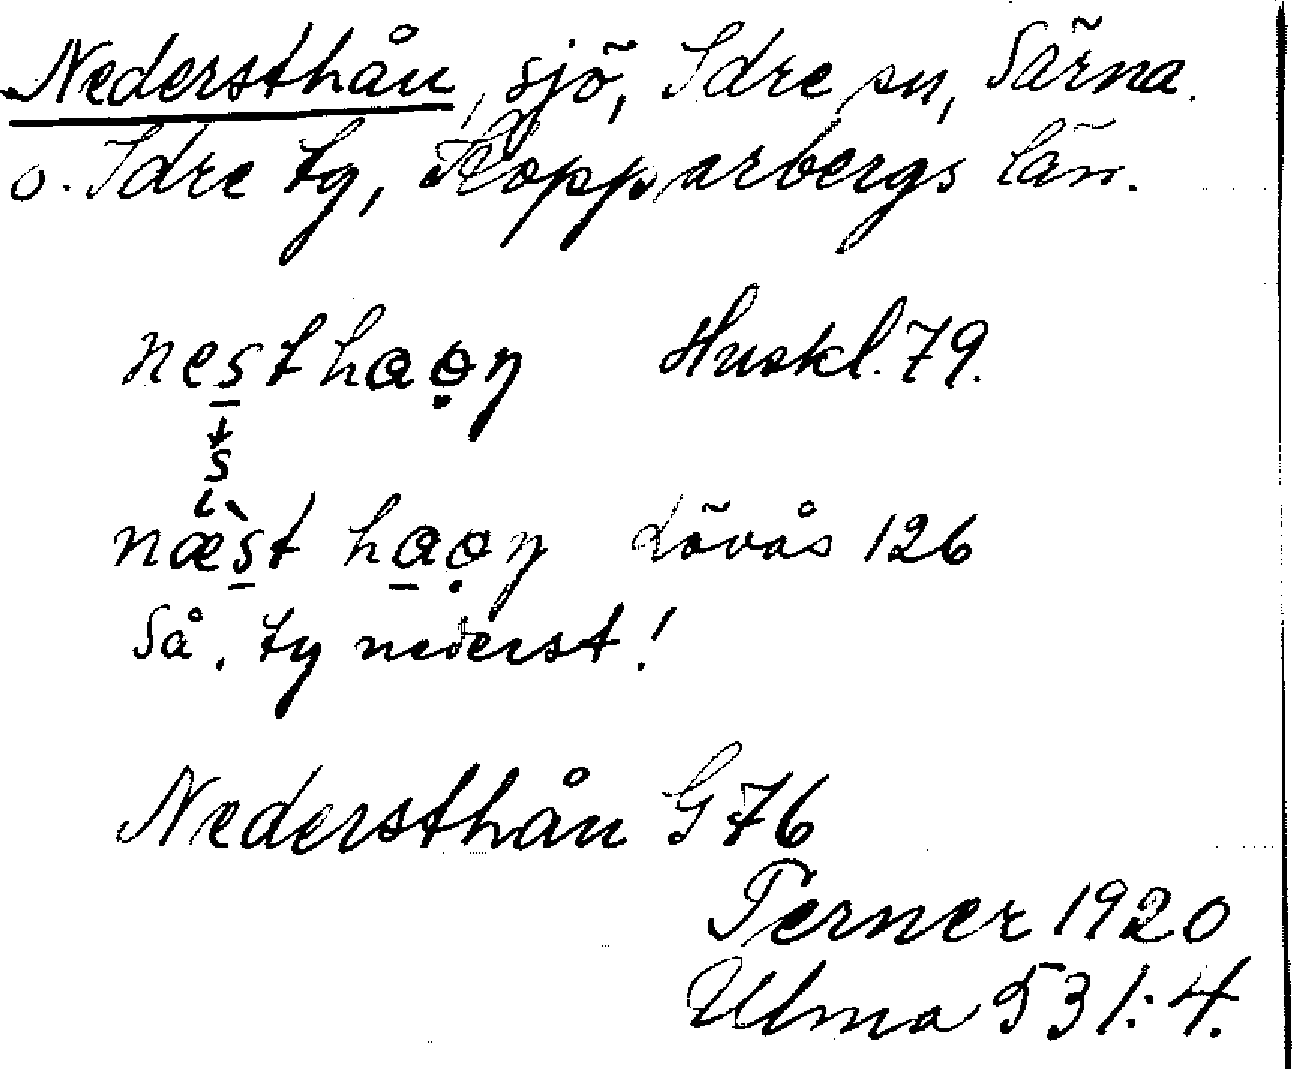 Nedersthån, sjö, Idre sn, Särna
o. Idre tg, Kopparbergs län.
nesthaon Huskl. 79.
s
næst haon Lövås 126
Så, ty nederst!
Nedersthån G 76
Terner 1920
Ulma 531:4.